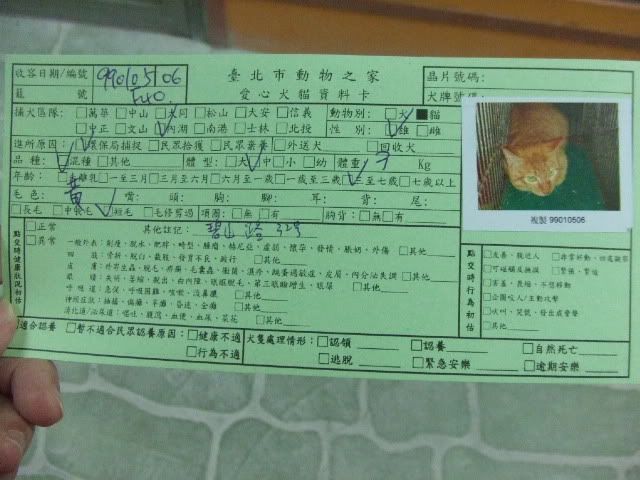 收容日期/編號 990/05/06 晶片號碼:
臺北市動物之家
籠 號 F40. 犬牌號碼:
愛心犬貓資料卡
捕犬區隊: □萬華 □中山 □大同 □松山 □大安 □信義 動物別: □犬 ■貓
□中正 □文山 □內湖 □南港 □士林 □北投 性 別: □雄 □雌
進所原因: □環保局捕捉 □民眾拾獲 □民眾棄養 □外送犬 □回收犬
品 種: □混種 □其他 體 型: □大 □中 □小 □幼 體重: Kg
年齡: □離乳 □一至三月 □三月至六月 □六月至一歲 □一歲至三歲 □三至七歲 □七歲以上
毛色: 黃 嘴: 頭: 胸: 腳: 耳: 背: 尾:
□長毛 □中長毛 □短毛 □毛修剪過 項圈: □無 □有 胸背: □無 □有
複製 99010506
點交時健康狀況初估
□正常
□異常
其他註記: 碧山路 32號
一般外表: 削瘦、脫水、肥胖、畸型、腫瘤、赫尼亞、虛弱、懷孕、發情、脹奶、外傷 □其他
四 肢: 骨折、脫臼、截肢、發育不良、跛行 □其他
皮 膚: 外寄生蟲、脫毛、疥癬、毛囊蟲、黴菌、濕疹、跳蚤過敏症、皮屑、內分泌失調 □其他
呼吸道: 急促、呼吸困難、咳嗽、流鼻膿 □其他
神經症狀: 抽搐、偏癱、半癱、昏迷、全癱 □其他
消化道/泌尿道: 嘔吐、腹瀉、血便、血尿、菜花 □其他
點交時行為初估
□友善、親近人
□可碰觸及撫摸 □緊張、警追
□害羞、畏縮、不想移動
□企圖咬人/主動攻擊
□吠叫、哭號、發出威脅聲
□其他
□適合認養 □暫不適合民眾認養原因: □健康不適
□行為不適
犬隻處理情形: □認領 □認養 □自然死亡
□逃脫 □緊急安樂 □逾期安樂